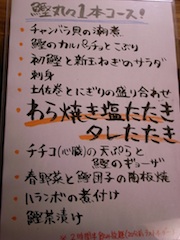 鰹丸の1本コース!
チャンバラ貝の潮煮
鰹のカルパッチョとこぶり
初鰹と新玉ねぎのサラダ
刺身
土佐巻とにぎりの盛り合わせ
わら焼き塩たたき
タレたたき
チチコ(心臓)の天ぷらと
鰹のギョーザ
春野菜と鰹団子の陶板焼
ハランボの煮付け
鰹茶漬け